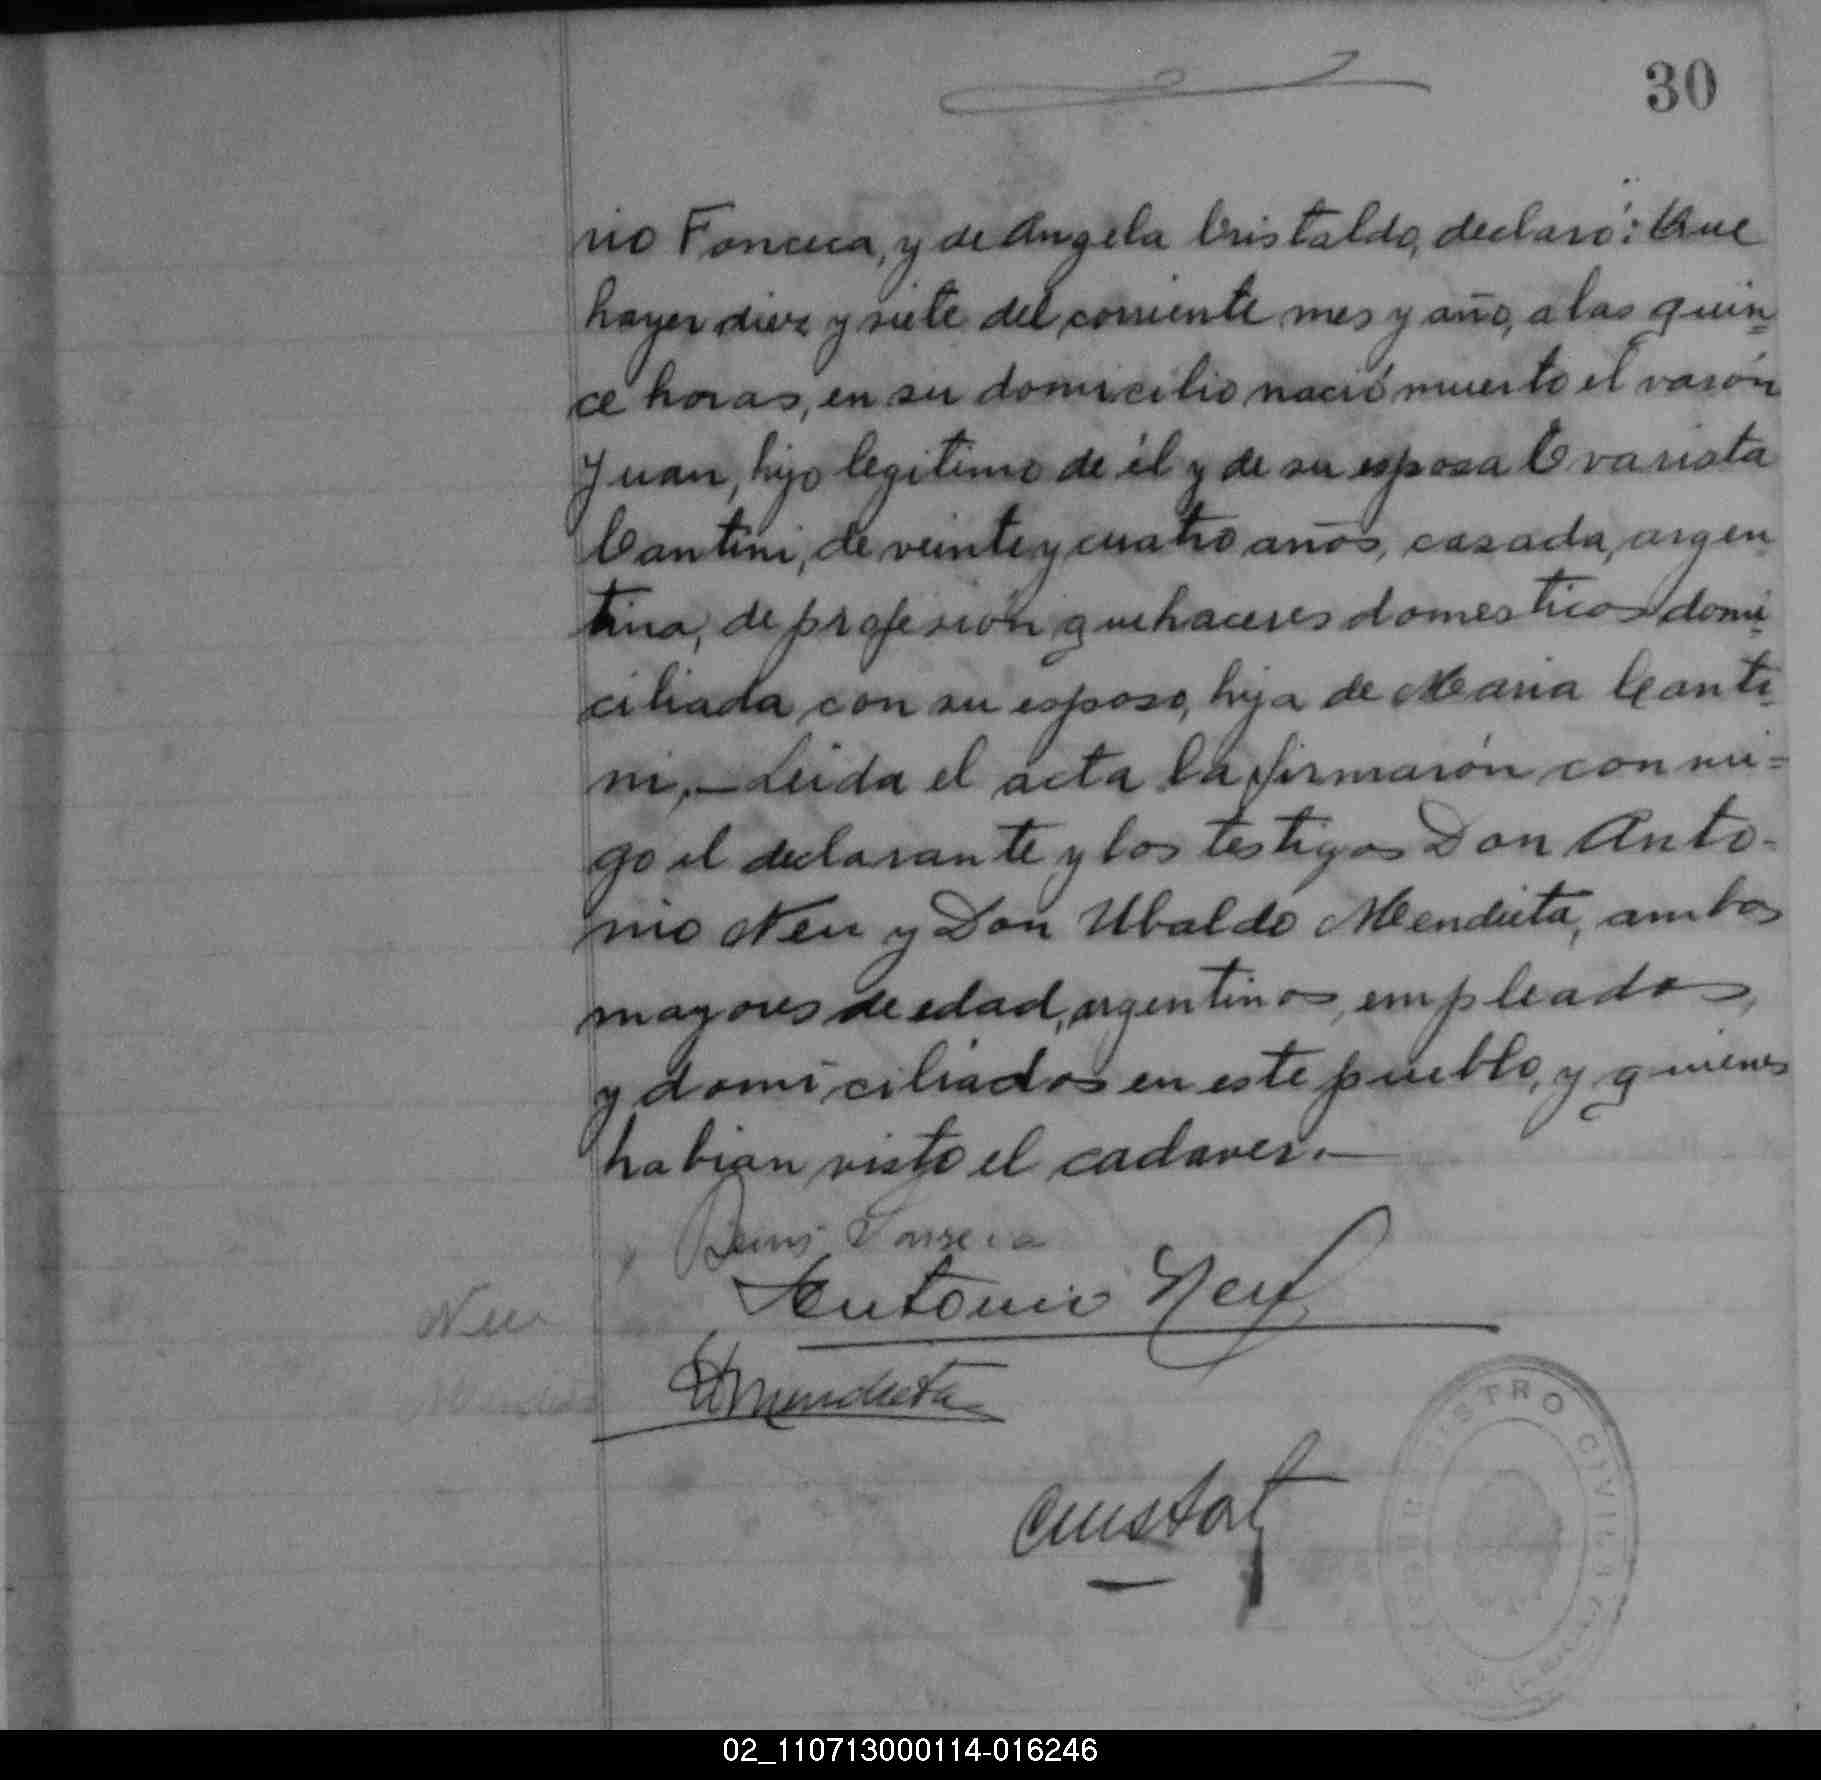 30
rio Fonceca, y de Angela Cristaldo, declaró: Que
hayer diez y siete del corriente mes y año, a las quin=
ce horas, en su domicilio nació muerto el varón
Juan, hijo legitimo de él y de su esposa Evarista
Cantini, de veinte y cuatro años, casada, argen
tina, de profesión quehaceres domesticos domi=
ciliada con su esposo, hija de Maria Canti=
ni.—Leida el acta la firmarón con mi=
go el declarante y los testigos Don Anto-
nio Neu y Don Ubaldo Mendieta, ambos
mayores de edad, argentinos, empleados,
y domiciliados en este pueblo, y quienes
habian visto el cadaver.—
Fonseca
Antonio Neu
Neu
UMendieta
REGISTRO CIVIL
02_110713000114-016246